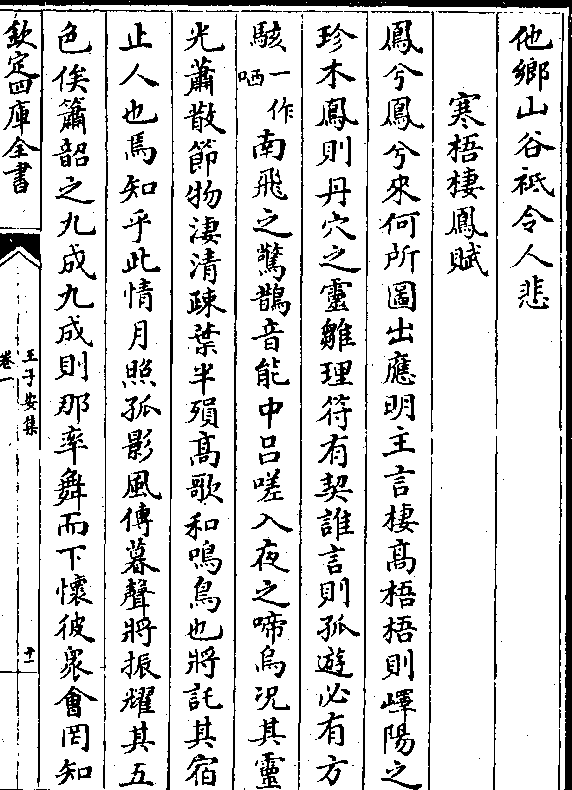 他鄉山谷祗令人悲
寒梧棲鳳賦
鳳兮鳳兮來何所圖出應明主言棲髙梧梧則嶧陽之
珍木鳳則丹穴之靈雛理符有契誰言則孤遊必有方
駭一作哂南飛之驚鵲音能中吕嗟入夜之啼烏况其靈
光蕭散節物淒清疎葉半殞髙歌和鳴鳥也將託其宿
止人也焉知乎此情月照孤影風傳暮聲將振耀其五
色俟簫韶之九成九成則那率舞而下懷彼衆會罔知
欽定四庫全書
王子安集
卷一
十一